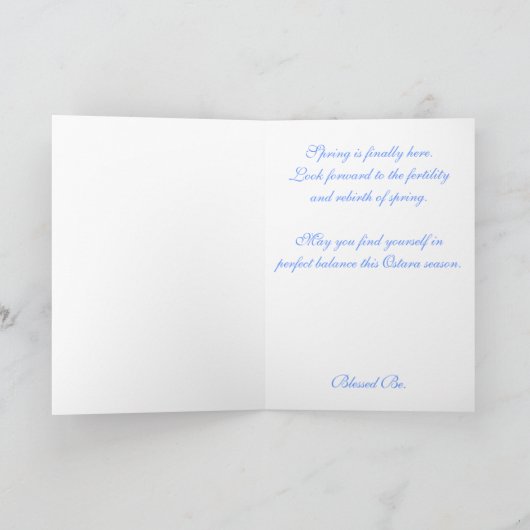 Spring is finally here.
Look forward to the fertility
and rebirth of spring.
May you find yourself in
perfect balance this Ostara season.
Blessed Be.